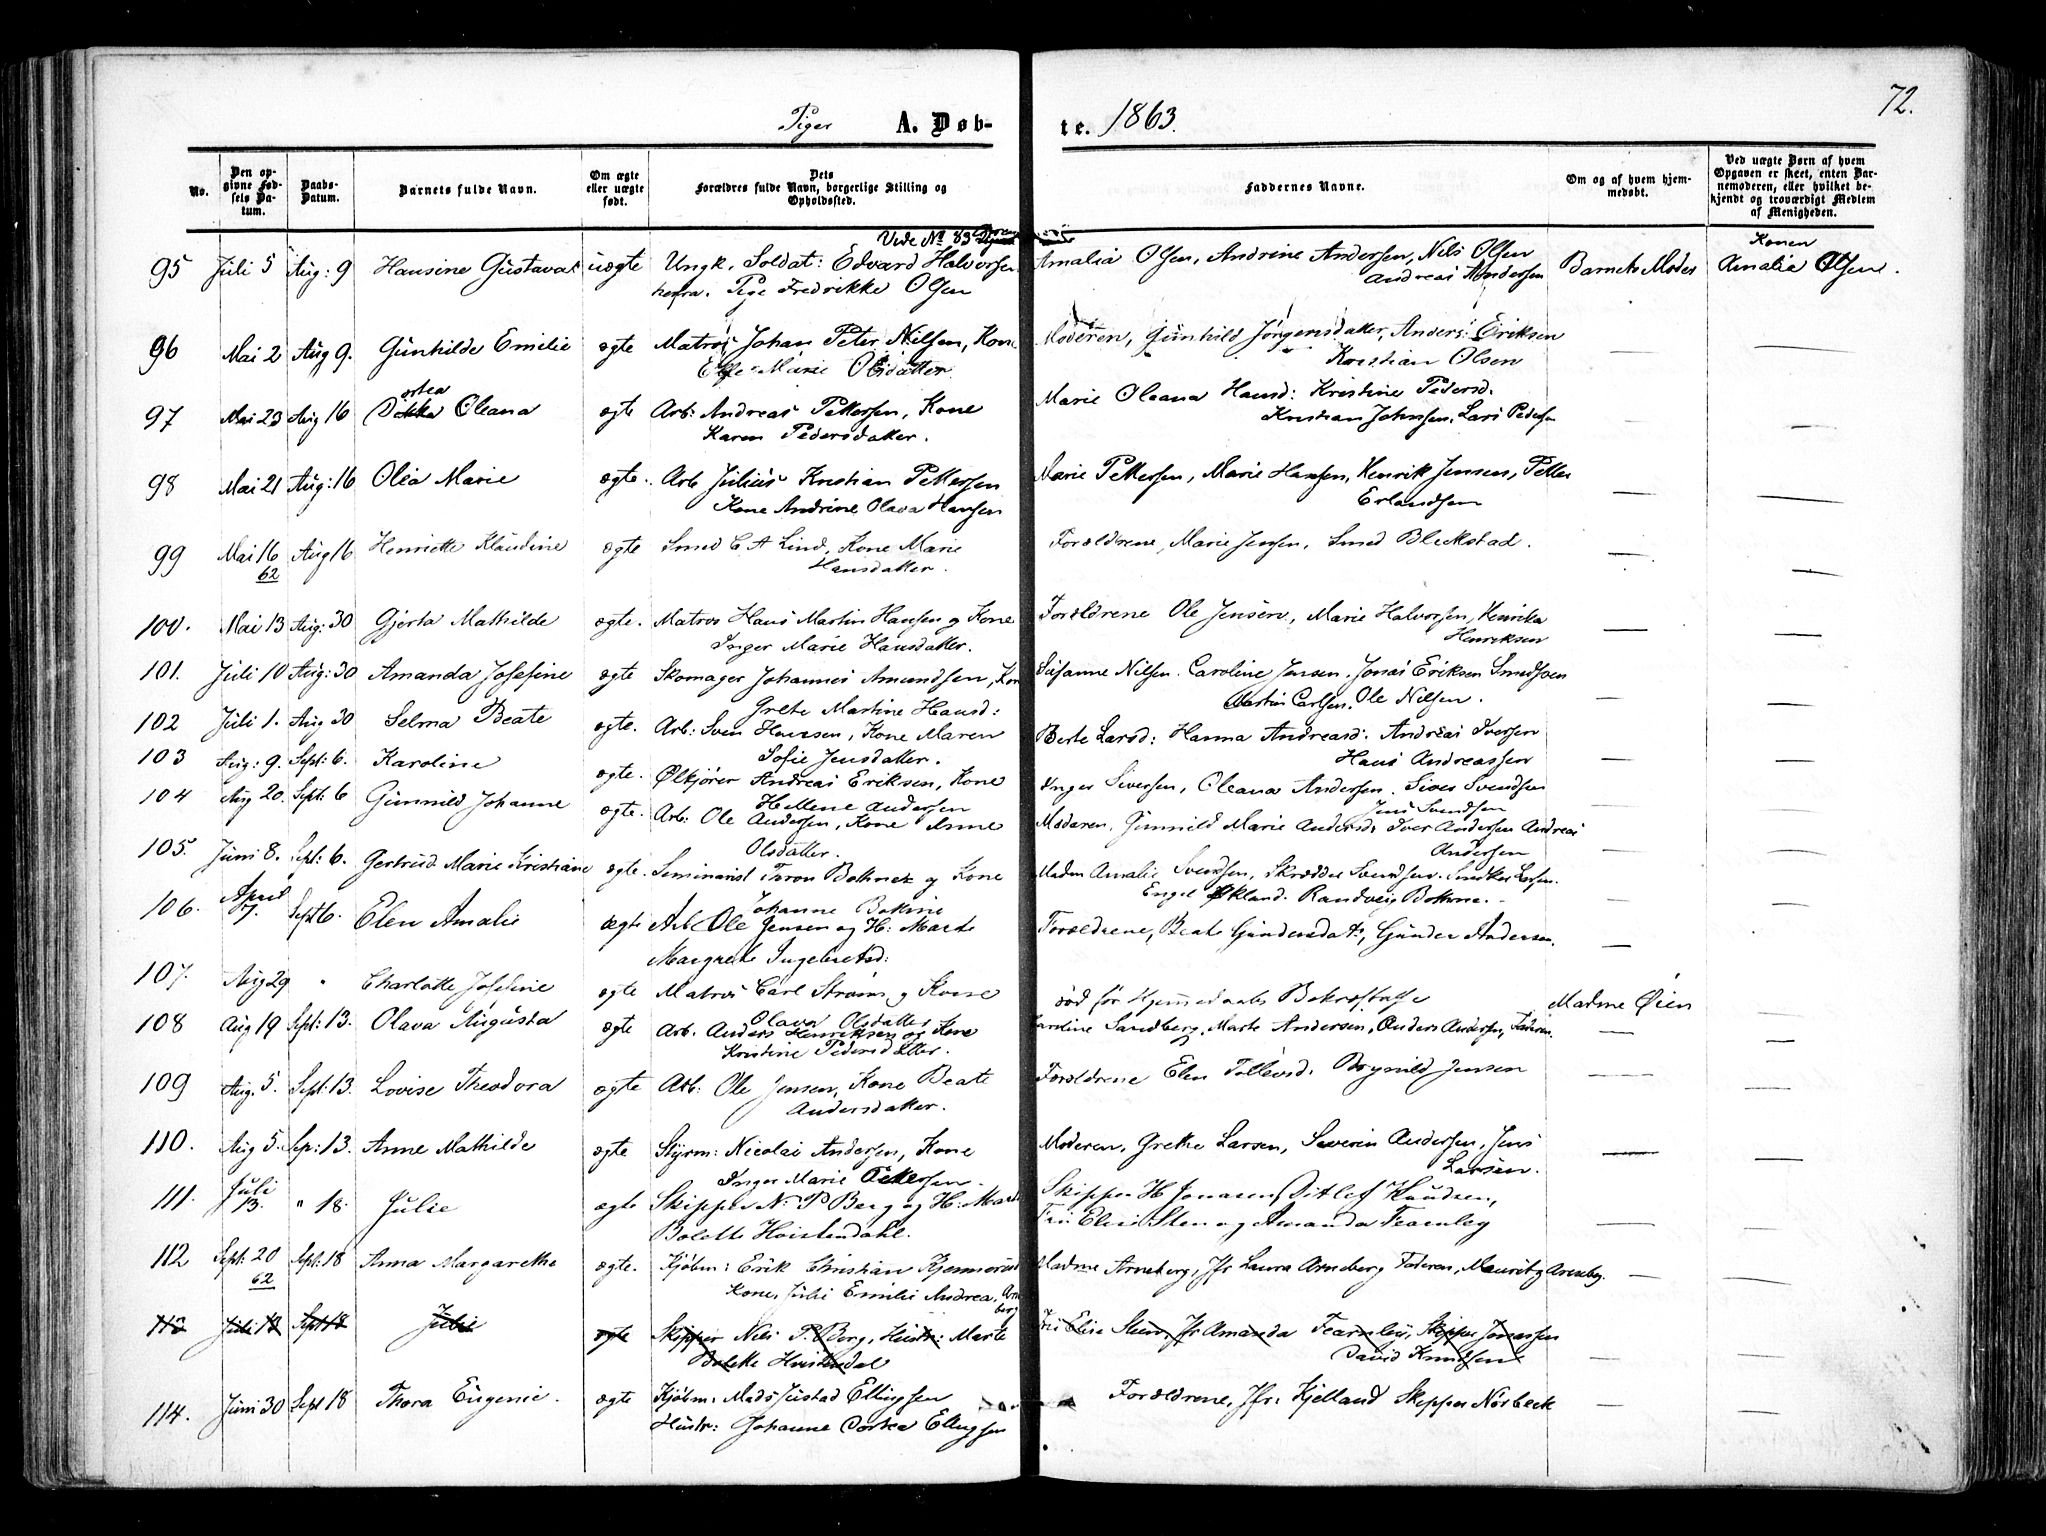 72.
Piger A. Døb-
te. 1863.
No.
Den op-
givne Fød-
sels Da-
tum.
Daabs-
Datum.
Barnets fulde Navn.
Om ægte
eller uægte
født.
Dets
Forældres fulde Navn, borgerlige Stilling og
Opholdssted.
Faddernes Navne.
Om og af hvem hjem-
medøbt.
Ved uægte Børn af hvem
Opgaven er skeet, enten Bar-
nemoderen, eller hvilket be-
kjendt og troværdigt Medlem
af Menigheden.
Vide No 83
95 Juli 5 Aug: 9 Hansine Gustava uægte Ungk. Soldat: Edvard Halvorsen Amalia Olsen, Andrine Andersen, Nils Olsen Barnets Moder Konen Amalie Olsen.
Pige Fredrikke Olsen Andreas Andersen
96 Mai 2 Aug 9. Gunhilde Emilie ægte Matros Johan Peter Nilsen, Kone Moderen, Gunhild Jørgensdatter, Anders Eriksen — —
Else Marie Olsdatter Kristian Olsen
97 Mai 23 Aug 16 Oleana ægte Arb: Andreas Pettersen, Kone Marie Oleana Hansd: Kristine Pedersd. — —
Karen Pedersdatter. Kristian Johnsen, Lars Pedersen
98 Mai 21 Aug: 16 Olea Marie ægte. Arb Julius Kristian Pettersen Marie Pettersen, Marie Hansen, Henrik Jensen, Petter — —
Kone Andrine Olava Hansen Erlandsen
99 Mai 16 62 Aug 16 Henriette Klaudine ægte Smed C A Lind, Kone Marie Forældrene, Marie Jensen, Smed Blekstad. — —
Hansdatter.
100. Mai 13 Aug: 30 Gjerta Mathilde ægte. Matros Hans Martin Hansen og Kone Forældrene Ole Jensen, Marie Halvorsen, Henrika — —
Inger Marie Hansdatter. Henriksen
101. Juli 10 Aug: 30 Amanda Josefine ægte Skomager Johannes Amundsen, Kone Susanne Nilsen. Caroline Jensen. Jonas Eriksen — —
Grete Martine Hansd: Martin Carlsen. Ole Nilsen.
102 Juli 1. Aug 30 Selma Beate ægte. Arb: Sven Hansen, Kone Maren Berte Larsd: Hanna Andreasd: Andreas Iversen — —
Sofie Jensdatter. Hans Andreassen
103 Aug: 9. Sept: 6. Karoline ægte. Ølkjører Andreas Eriksen, Kone Inger Siversen, Oleana Andersen. Siver Svendsen — —
Hellene Andersen Jens Svendsen
104 Aug 20. Sept: 6 Gunnild Johanne ægte. Arb: Ole Andersen, Kone Anne Moderen, Gunnild Marie Andersd: Iver Andersen Andreas — —
Olsdatter. Andersen
105. Juni 8. Sept: 6. Gertrud Marie Kristiane ægte. Seminarist Tron Bakner og Kone Madm Amalie Svendsen, Skrædder Svendsen. — —
Johanne Engel Økland. Randveig Bakne.
106. April 7. Sept 6. Elen Amalie ægte Arb Ole Jensen og H: Marte Forældrene, Beate Gundersdatr, Gunder Andersen. —
Margrete Ingebretsd:
107. Aug 29 " Charlotte Josefine ægte Matros Carl Strøm og Kone død før Hjemmedaabs Bekræftelse Madme Øien
Olava Olsdatter
108 Aug 19 Sept: 13. Olava Augusta ægte Arb. Anders Henriksen og Kone Karoline Sandberg, Marte Andersen, Anders Andersen, Faderen. — —
Kristine Pedersdatter.
109 Aug. 5. Sept: 13. Lovise Theodora ægte Arb: Ole Jensen, Kone Beate Forældrene Elen Tollevsd. Brynild Jensen — —
Andersdatter.
110. Aug 5. Sep: 13. Anne Mathilde ægte Styrm: Nicolai Andersen, Kone Moderen, Grethe Larsen, Severin Andersen, Jens — —
Inger Marie Pettersen. Larsen.
111. Juli 13. " 18. Julie ægte Skipper N. P Berg og H: Marte Skipper H Jonasen, Ditlef Knudsen, — —
Bolette Hvistendahl. Fru Elise Sten og Amanda Fearnley
112 Sept: 20 62 Sept: 18 Anna Margarethe ægte. Kjøbm: Erik Christian Madme Arneberg, Jfr Laura Arneberg Faderen, Mauritz Arneberg. — —
Kone, Julie Emilie Andrea Arneberg
113 Juli 13 Sept 18 Julie ægte Skipper Nils P. Berg, Hustr: Marte Fru Elise Steen, Jfr Amanda Fearnley, Skipper Jonassen — —
Bolette Hvistendal David Knudsen
114. Juni 30 Sept 18 Thora Eugenie. ægte Kjøbm: Mads Justad Ellingsen Forældrene, Jfr: Kjelland Skipper Norbeck — —
Hustr: Johanne Dorthea Ellingsen